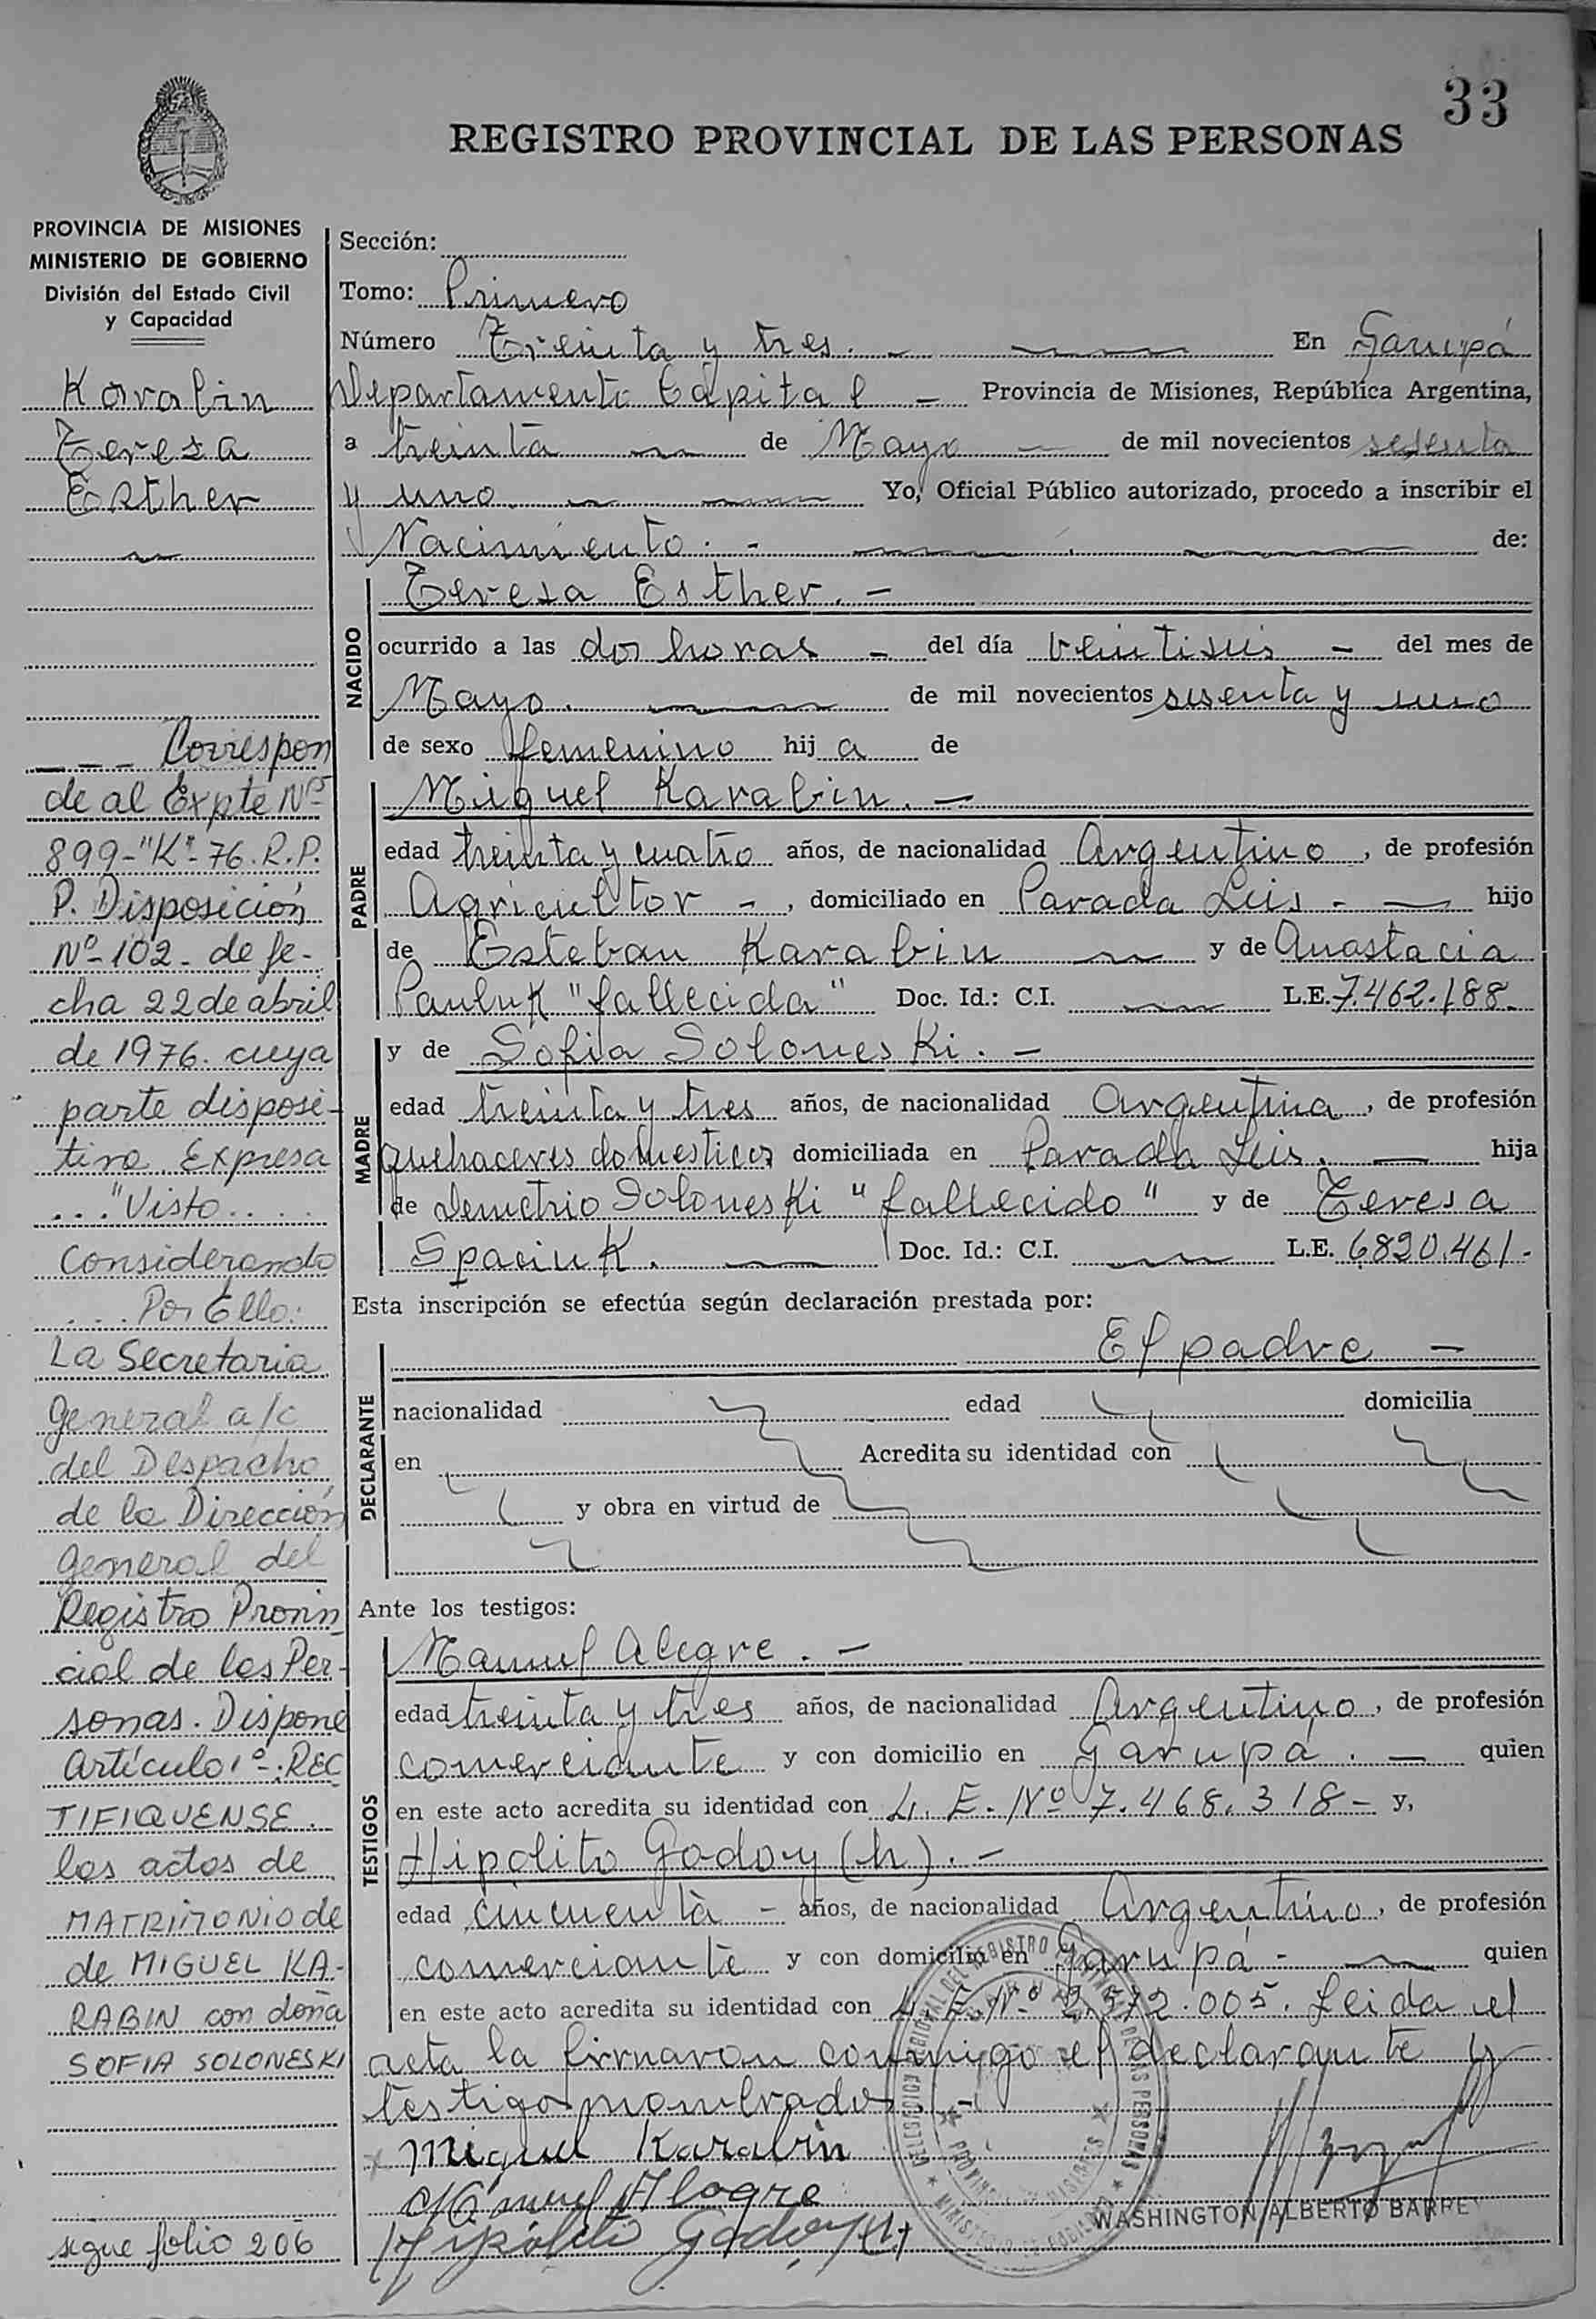 33
REGISTRO PROVINCIAL DE LAS PERSONAS
PROVINCIA DE MISIONES
MINISTERIO DE GOBIERNO
División del Estado Civil
y Capacidad
Karabin
Teresa
Esther
Correspon
de al Expte Nº
899-"K"-76. R.P.
P. Disposición
Nº-102- de fe-
cha 22 de abril
de 1976. cuya
parte disposi-
tiva Expresa
..."Visto....
Considerando
....Por Ello:
La Secretaria
General a/c
del Despacho
de la Dirección
General del
Registro Provin
cial de las Per-
sonas. Dispone
Artículo 1º-: REC
TIFIQUENSE.
las actas de
MATRIMONIO de
de MIGUEL KA-
RABIN con doña
SOFIA SOLONESKI
sigue folio 206
Sección:
Tomo: Primero
Número Treinta y tres. - En Garupá
Departamento Capital - Provincia de Misiones, República Argentina,
a treinta de Mayo de mil novecientos sesenta
y uno Yo, Oficial Público autorizado, procedo a inscribir el
Nacimiento. - de:
NACIDO
Teresa Esther. -
ocurrido a las dos horas - del día veintiseis - del mes de
Mayo. de mil novecientos sesenta y uno
de sexo femenino hij a de
PADRE
Miguel Karabin. -
edad treinta y cuatro años, de nacionalidad Argentino, de profesión
Agricultor -, domiciliado en Parada Leis. - hijo
de Esteban Karabin y de Anastacia
Pauluk "fallecida" Doc. Id.: C.I. L.E. 7.462.188.
MADRE
y de Sofia Soloneski. -
edad treinta y tres años, de nacionalidad Argentina, de profesión
quehaceres domesticos domiciliada en Parada Leis. hija
de Demetrio Soloneski "fallecido" y de Teresa
Spaciuk. Doc. Id.: C.I. L.E. 6.820.461.-
Esta inscripción se efectúa según declaración prestada por:
DECLARANTE
El padre -
nacionalidad edad domicilia
en Acredita su identidad con
y obra en virtud de
Ante los testigos:
TESTIGOS
Manuel Alegre. -
edad treinta y tres años, de nacionalidad Argentino, de profesión
comerciante y con domicilio en Garupá. - quien
en este acto acredita su identidad con L. E. Nº 7.468.318- y,
Hipólito Godoy (h). -
edad cincuenta - años, de nacionalidad Argentino, de profesión
comerciante y con domicilio en Garupá - quien
en este acto acredita su identidad con L. E. Nº 2.572.005. Leida el
acta la firmaron conmigo el declarante y
testigos nombrados. -
x Miguel Karabin
Manuel Alegre
Hipólito Godoy (h)
WASHINGTON ALBERTO BARREY